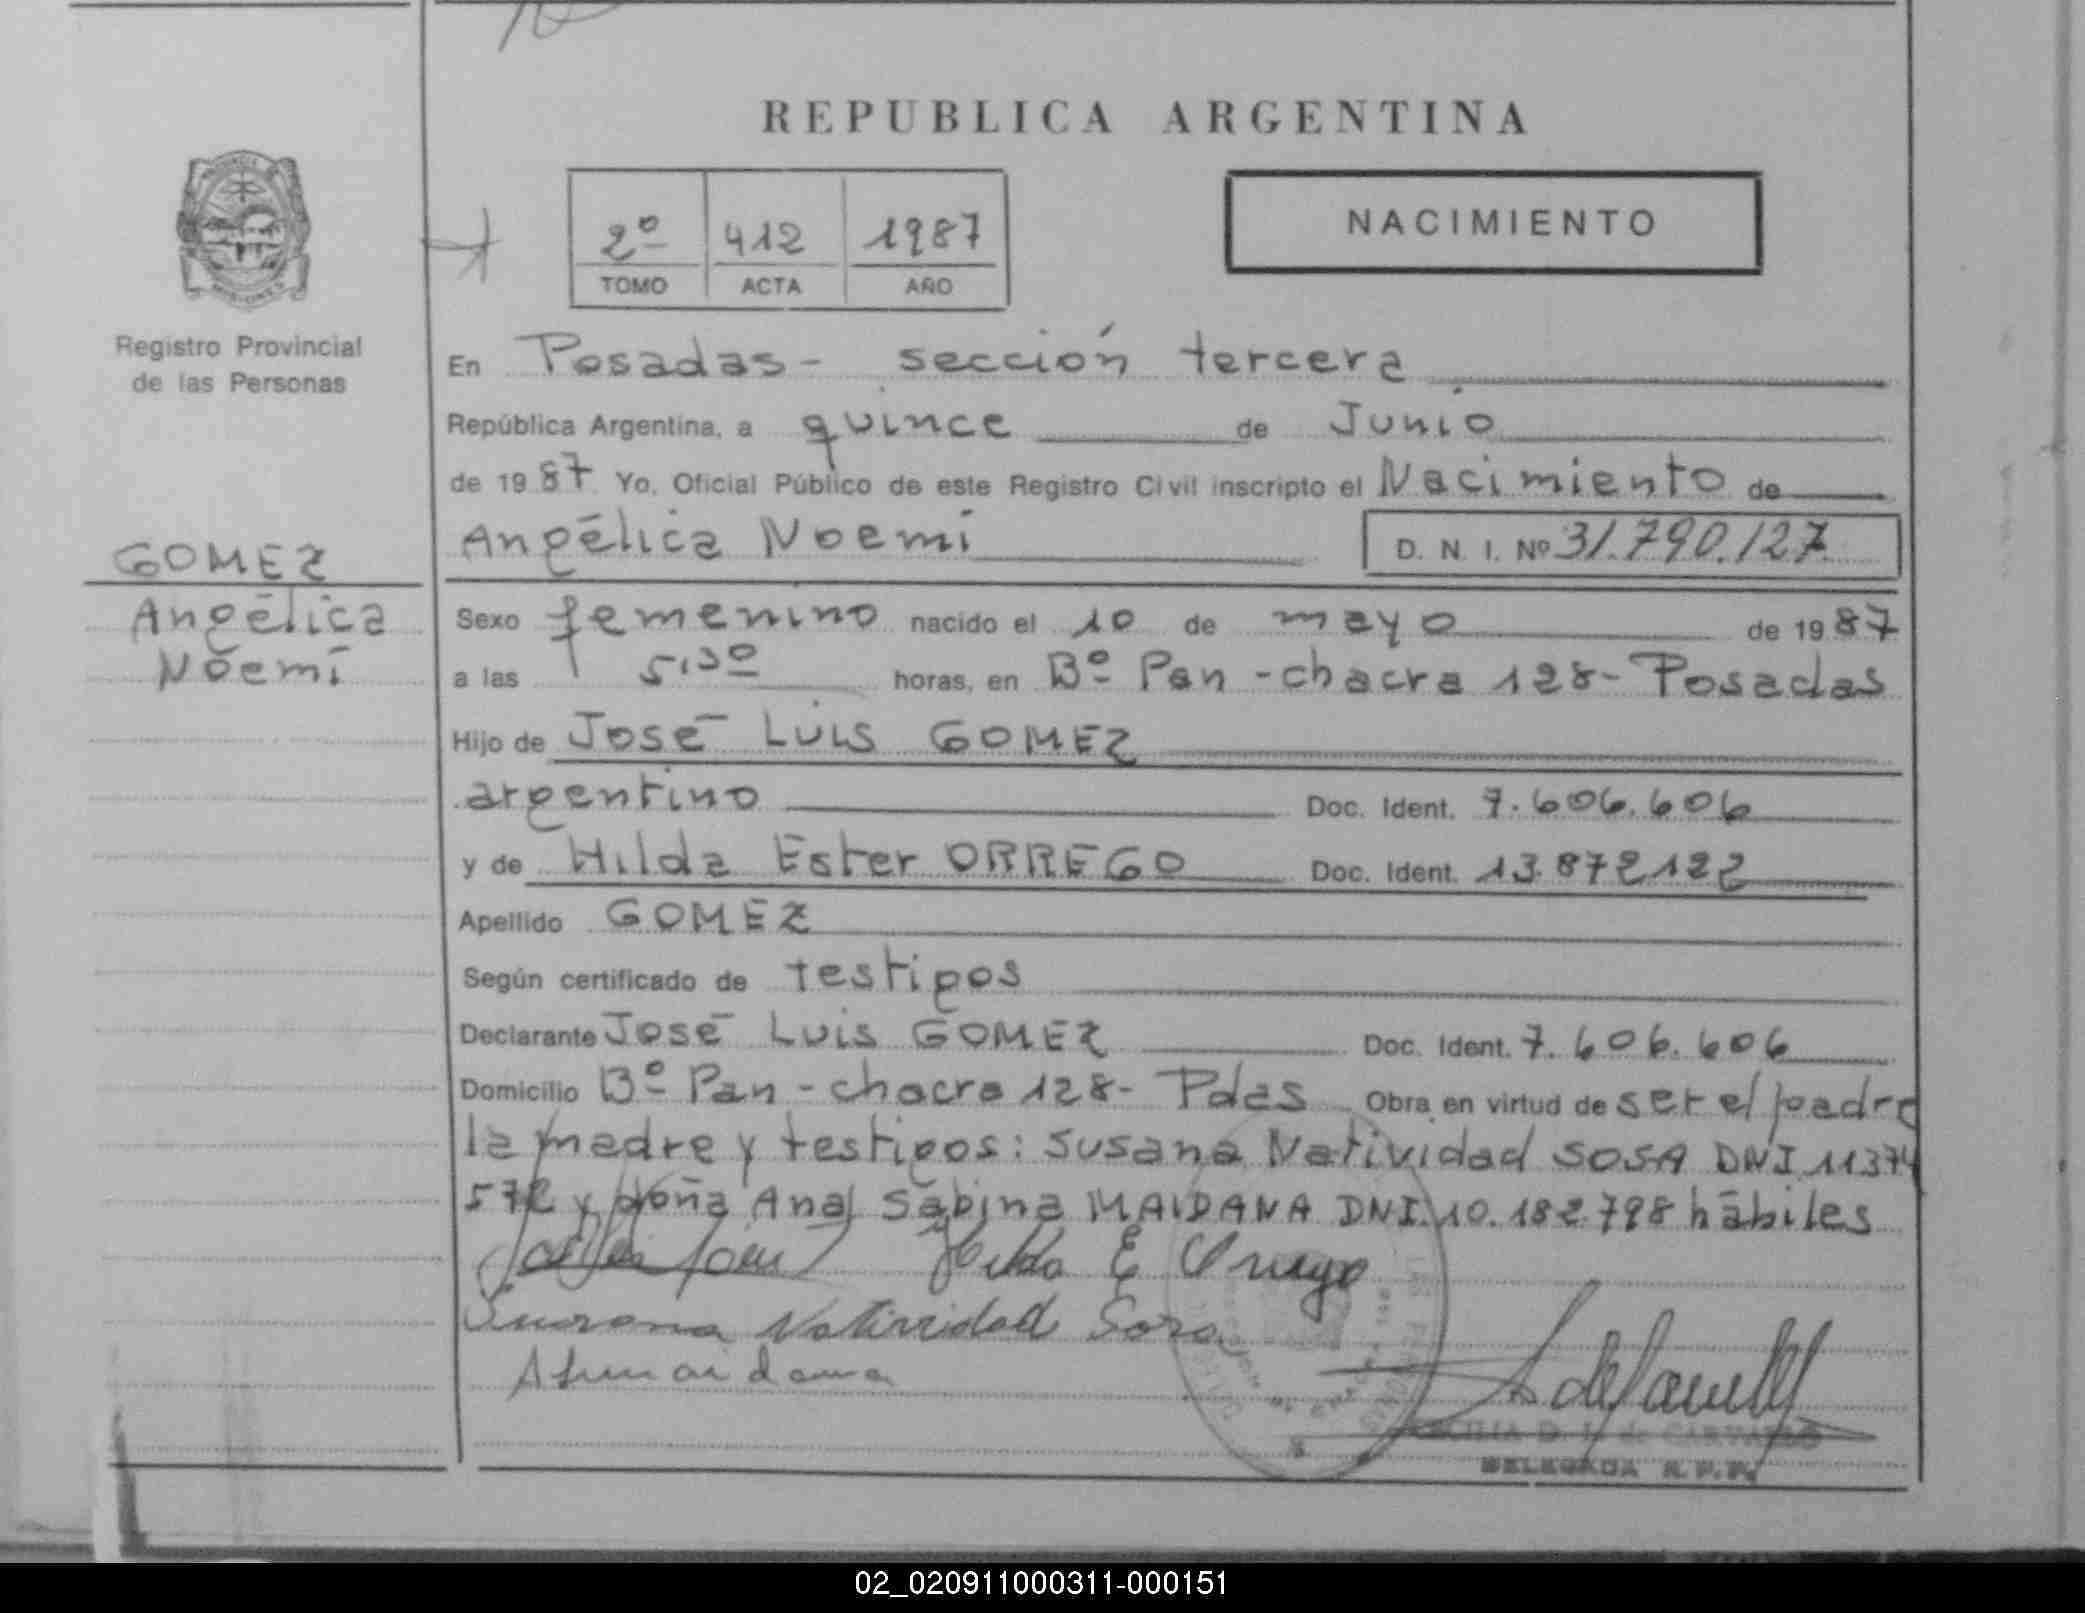 REPUBLICA ARGENTINA
2º 412 1987
TOMO ACTA AÑO
NACIMIENTO
Registro Provincial
de las Personas
GOMEZ
Angélica
Noemí
En Posadas - sección tercera
República Argentina, a quince de Junio
de 1987 Yo, Oficial Público de este Registro Civil inscripto el Nacimiento de
Angélica Noemí D. N. I. Nº 31.790.127
Sexo femenino nacido el 10 de mayo de 1987
a las 5,30 horas, en Bº Pan - chacra 128 - Posadas
Hijo de José Luis GOMEZ
argentino Doc. Ident. 7.606.606
y de Hilda Ester ORREGO Doc. Ident. 13.872122
Apellido GOMEZ
Según certificado de testigos
Declarante José Luis GOMEZ Doc. Ident. 7.606.606
Domicilio Bº Pan - chacra 128 - Pdas Obra en virtud de ser el padre
la madre y testigos: Susana Natividad SOSA DNI 11374
572 y doña Ana Sabina MAIDANA DNI. 10.182.798 hábiles
Hilda E Orrego
Susana Natividad Sosa
CARVALLO
DELEGADA R.P.P.
02_020911000311-000151